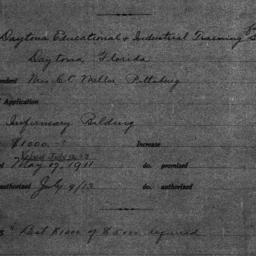 Daytona Educational & Industrial Training S
Daytona, Florida
dent Mrs E C Miller Pittsburg
Application
Infirmary Bilding
$1000. Increase
May 17, 1911 do. promised
authorized July 9/13 do. authorized
Last $1000 of $5000 required